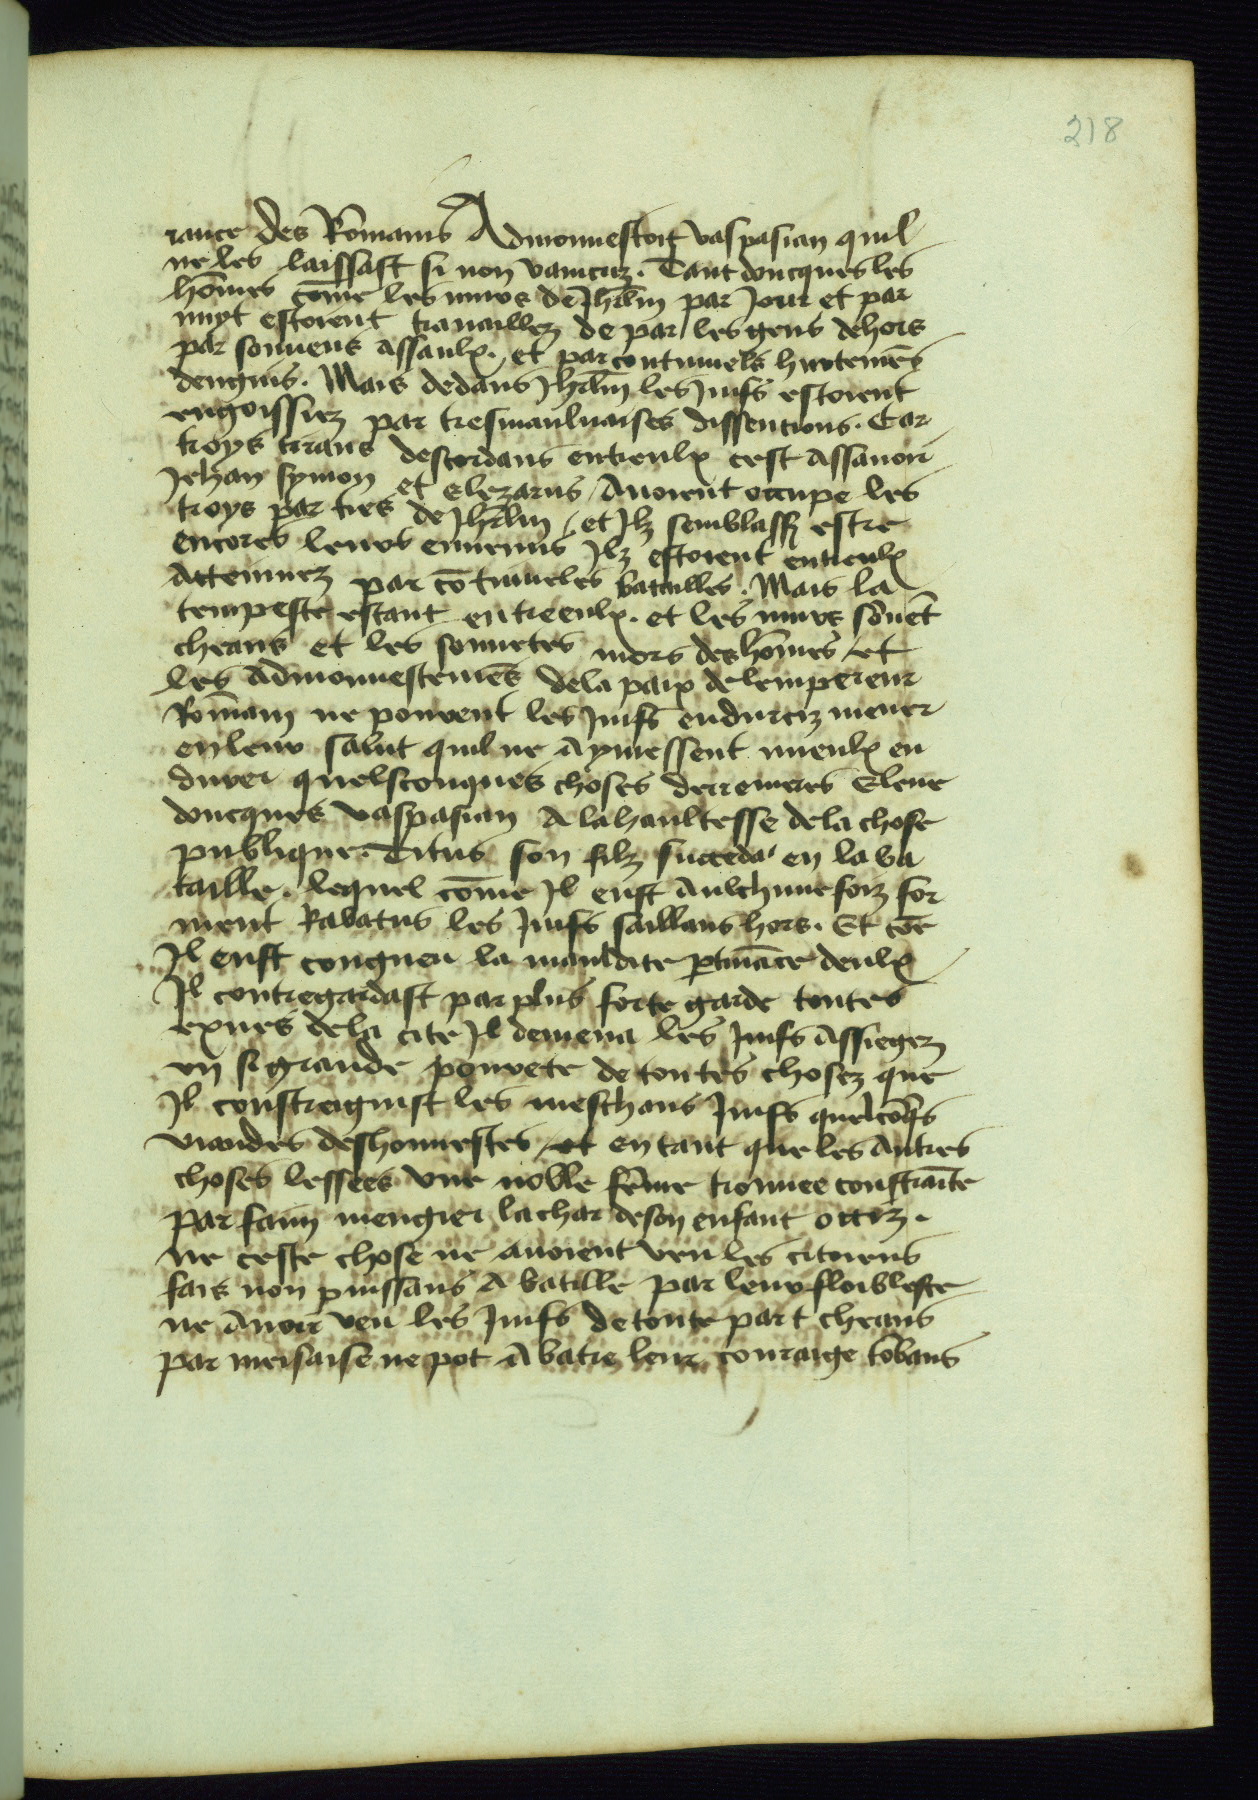 218
rance des Rōmains Admonnestoit vaspasian quil
ne les laissast si non vaincuz. Tant doncques les
hōmes cōme les murs de Jhrlm par Jour et par
nuyt estoient travaillez de par les gens dehors
par souvens assaulx. et par continuels hurtemēs
dengins. Mais dedans Jhrlm les Juifs estoient
engoissiez par tresmaulvaises dissentions. Car
troys tirans descordans entreulx cest assavoir
Jehan symon et elezarus avoient occupe les
troys parties de Jhrlm / et Jlz semblassẽt estre
encores leurs ennemis Jlz estoient entreulx
attenuez par cōtinueles batailles. Mais la
tempeste estant entreeulx. et les murs souvēt
cheans et les sonnetes mors des hōmes et
les admonnestemēs de la paix de lempereur
Rōmain ne povoent les Juifs endurciz mener
en leur salut quil ne aymessent mieulx en
durer quelsconques choses derrenieres Eleue
doncques vaspasian a la haultesse de la chose
publique. Titus son filz succeda en la ba
taille. lequel cōme Jl eust aulchune foiz for
ment Rabatus les Juifs saillans hors. Et cōe
Jl eust congneu la mauldite ptināce deulx
Jl contregardast par plus forte garde toutes
exues de la cite Jl demena les Juifs assiegez
en si grande povrete de toutes chosez que
Jl constreignist les meschans Juifs quelcōqs
viandes deshonnestes et en tant que les autres
choses lessees une noble fēme trouvee constraīte
par faim mengier la char de son enfant occiz.
ne ceste chose ne avoient veu les citoiens
fais non puissans a bataille par leur floiblesce
ne avoir veu les Juifs de toute part cheans
par mesaise ne pot abatre leur couraige tōbans